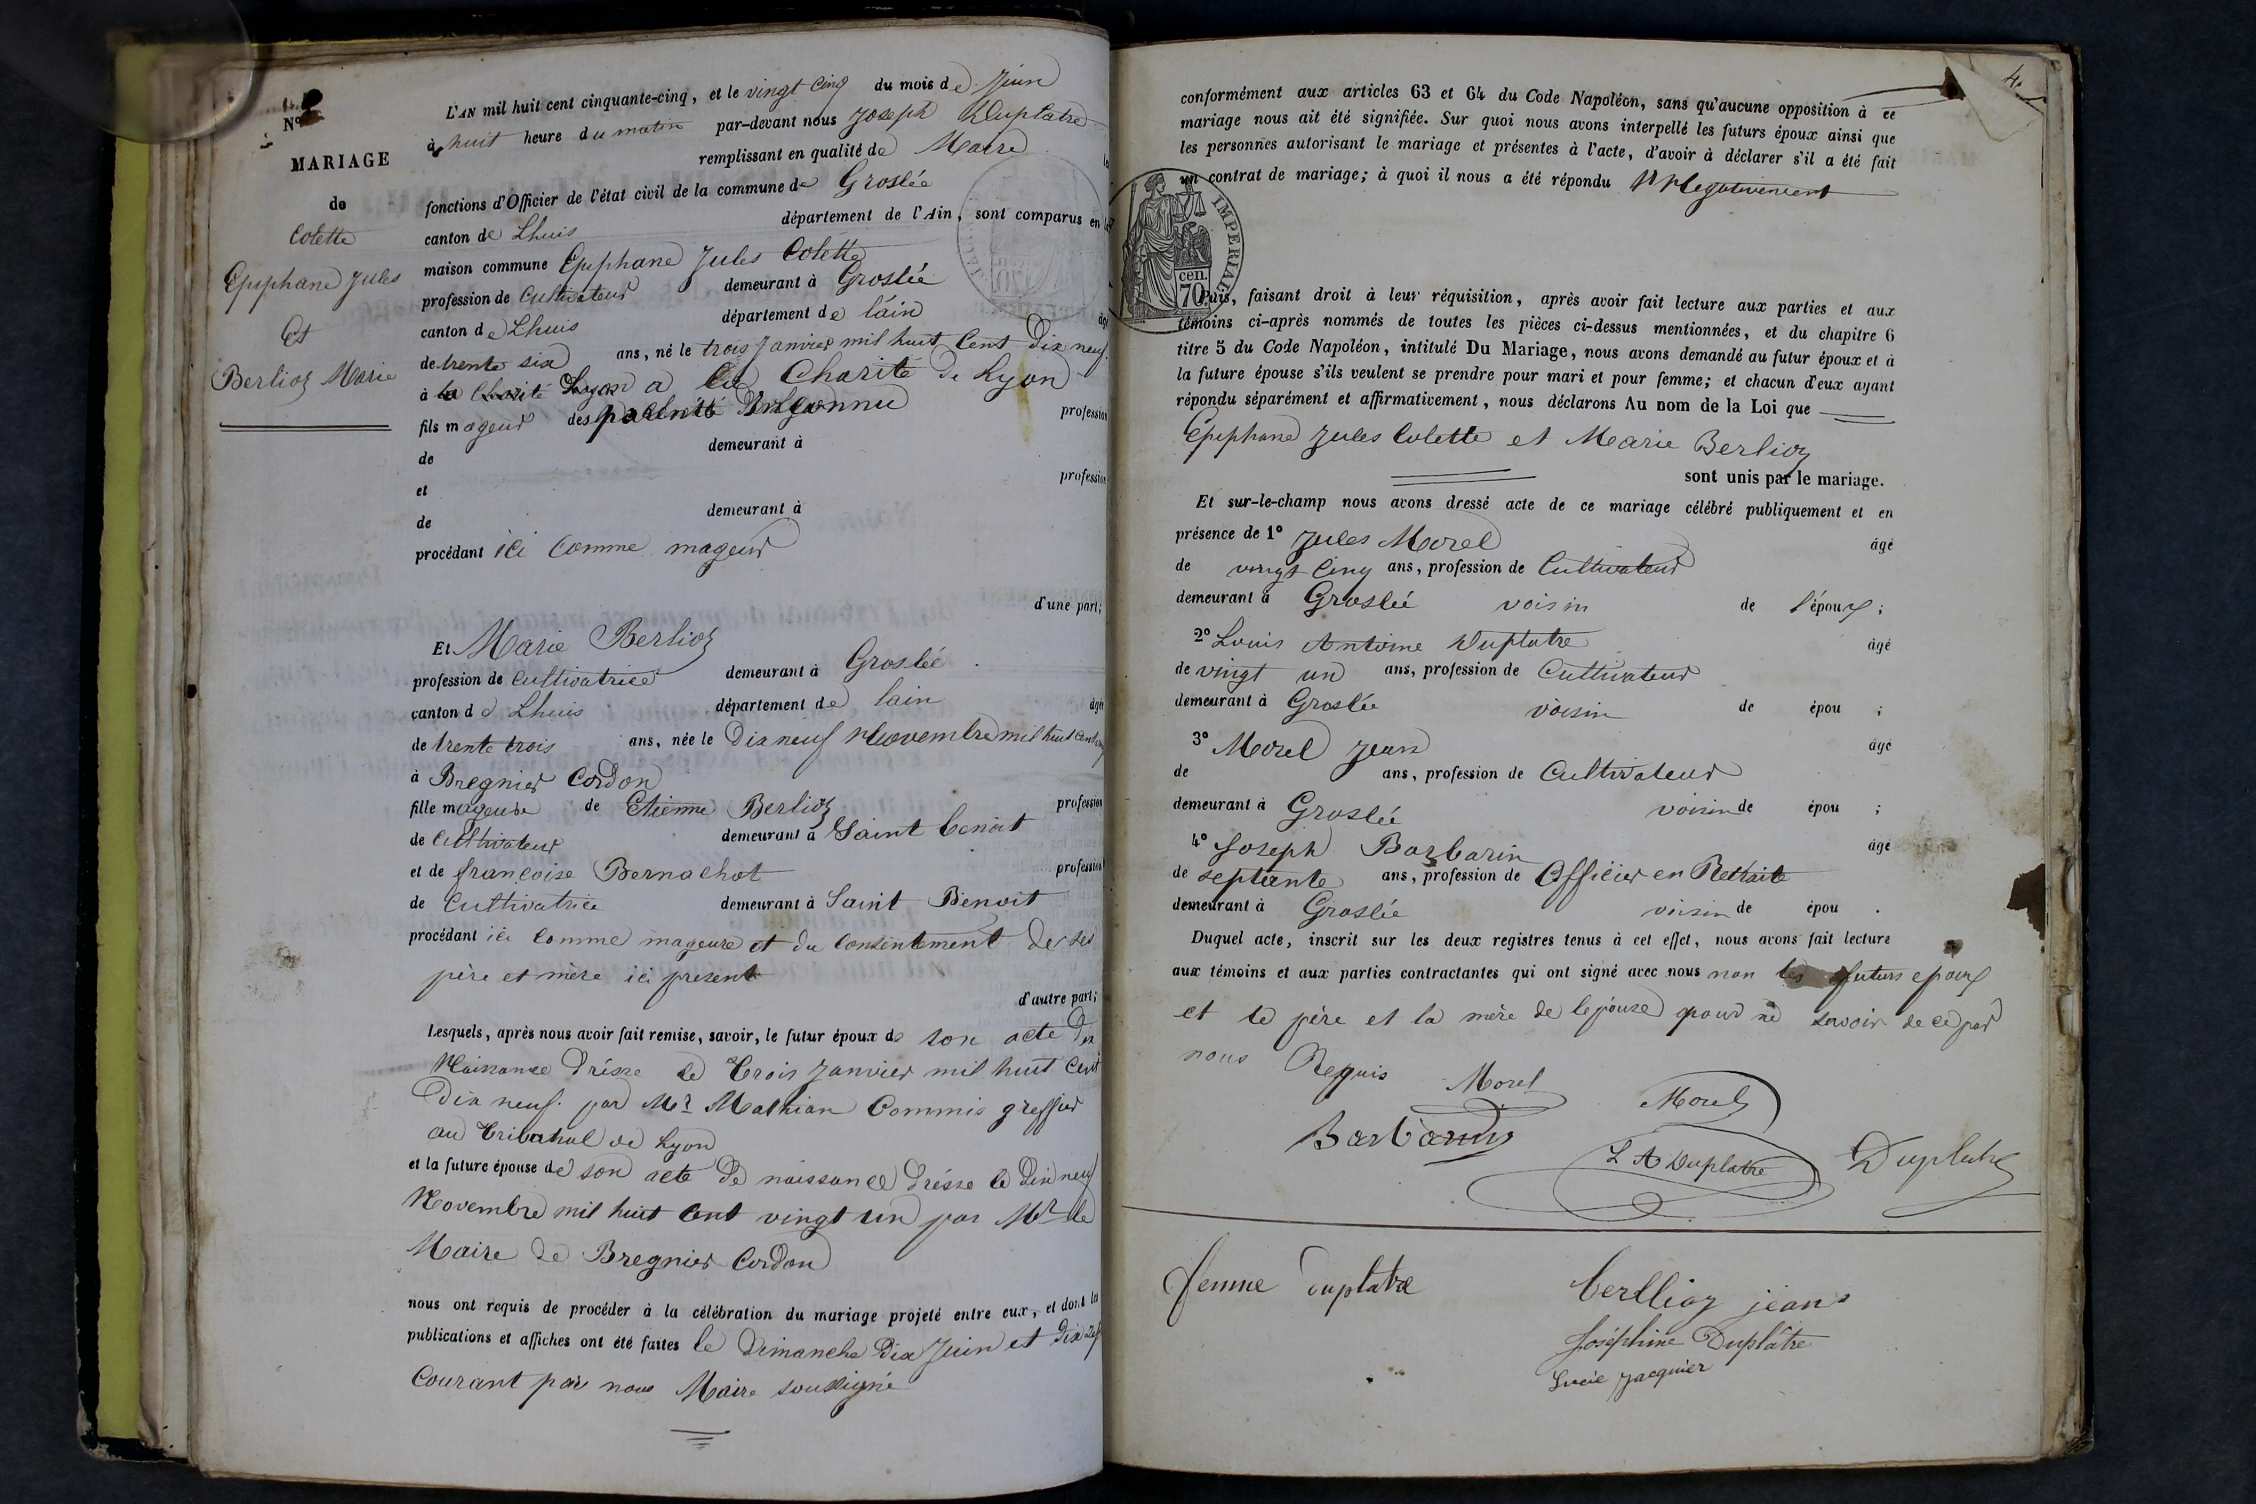 N°
MARIAGE
de
Colette
Epiphane Jules
Et
Berlioz Marie
L'AN mil huit cent cinquante-cinq, et le vingt Cinq du mois de Juin
à huit heure du matin par-devant nous Joseph Duplatre
remplissant en qualité de Maire
fonctions d'Officier de l'état civil de la commune de Groslée
canton de Lhuis département de l'Ain, sont comparus en la
maison commune Epiphane Jules Colette
profession de Cultivateur demeurant à Groslée
canton de Lhuis département de l'ain
de trente six ans, né le trois Janvier mil huit Cent Dix neuf
à la Charité Lyon a la Charité de Lyon
fils mageur des parenté Inconnu profession
de demeurant à
et profession
de demeurant à
procédant ici Comme mageur
d'une part;
Et Marie Berlioz
profession de Cultivatrice demeurant à Groslée
canton de Lhuis département de lain âgée
de trente trois ans, née le Dix neuf Novembre mil huit cent
à Bregnier Cordon
fille mageure de Etienne Berlioz profession
de Cultivateur demeurant à Saint benoit
et de françoise Bernachot profession
de Cultivatrice demeurant à Saint Benoit
procédant ici Comme mageure et du Consentement de ses
père et mère ici present
d'autre part;
Lesquels, après nous avoir fait remise, savoir, le futur époux de son acte de
Naissance Drésse le Trois Janvier mil huit Cent
Dix neuf par Mr Mathian Commis greffier
au Tribunal de Lyon
et la future épouse de son acte De naissance Drésse le Dix neuf
Novembre mil huit Cent vingt un par Mr le
Maire de Bregnier Cordon
nous ont requis de procéder à la célébration du mariage projeté entre eux, et dont les
publications et affiches ont été faites le Dimanche Dix Juin et Dix sept
Courant par nous Maire soussigné
4
conformément aux articles 63 et 64 du Code Napoléon, sans qu'aucune opposition à ce
mariage nous ait été signifiée. Sur quoi nous avons interpellé les futurs époux ainsi que
les personnes autorisant le mariage et présentes à l'acte, d'avoir à déclarer s'il a été fait
un contrat de mariage; à quoi il nous a été répondu Négativement
IMPERIAL
cen.
70
Puis, faisant droit à leur réquisition, après avoir fait lecture aux parties et aux
témoins ci-après nommés de toutes les pièces ci-dessus mentionnées, et du chapitre 6
titre 5 du Code Napoléon, intitulé Du Mariage, nous avons demandé au futur époux et à
la future épouse s'ils veulent se prendre pour mari et pour femme; et chacun d'eux ayant
répondu séparément et affirmativement, nous déclarons Au nom de la Loi que
Epiphane Jules Colette et Marie Berlioz
sont unis par le mariage.
Et sur-le-champ nous avons dressé acte de ce mariage célébré publiquement et en
présence de 1° Jules Morel âgé
de vingt Cinq ans, profession de Cultivateur
demeurant à Groslée voisin de l'époux ;
2° Louis Antoine Duplatre âgé
de vingt un ans, profession de Cultivateur
demeurant à Groslée voisin de épou ;
3° Morel Jean âgé
de ans, profession de Cultivateur
demeurant à Groslée voisin de épou ;
4° Joseph Barbarin âgé
de septente ans, profession de Officier en Retraite
demeurant à Groslée voisin de épou .
Duquel acte, inscrit sur les deux registres tenus à cet effet, nous avons fait lecture
aux témoins et aux parties contractantes qui ont signé avec nous non les futurs epoux
et le père et la mère de lepouse pour ne savoir de ce par
nous Requis
Morel
Morel
Barbarin
L A Duplatre
Duplatre
femme Duplatre
berllioz jean
Joséphine Duplâtre
Lucie Jacquier